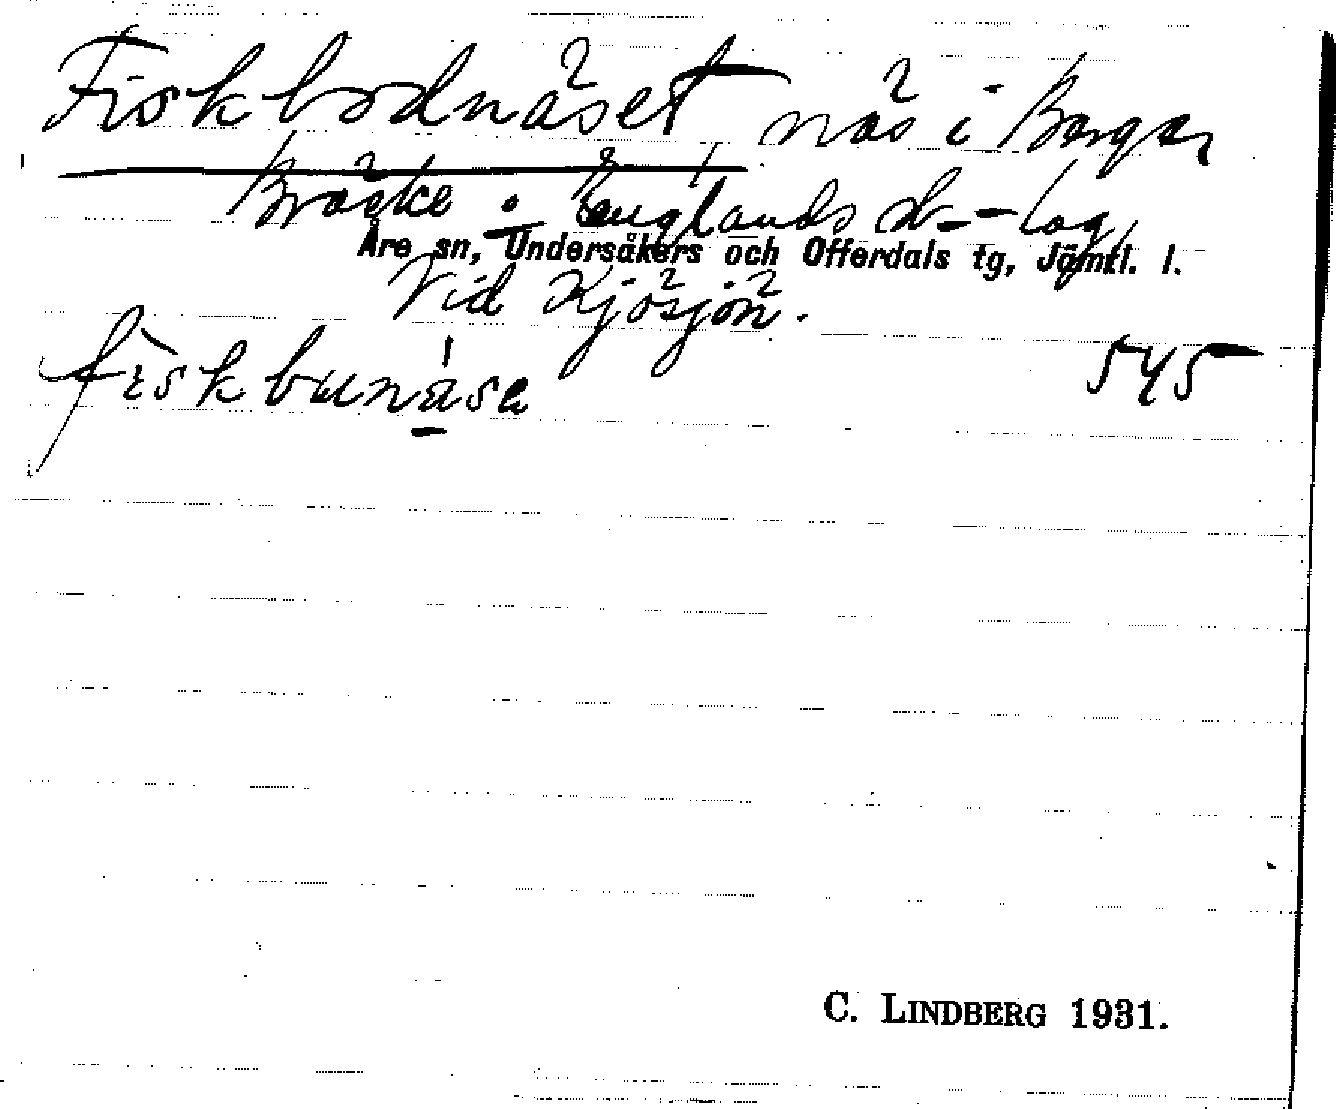 Fiskbodnäset näs i Bergen
Bräcke o. Englands sk.-lag,
Åre sn, Undersåkers och Offerdals tg, Jämtl. l.
Vid Kjösjön.
fiskbunäsa 545
C. LINDBERG 1931.